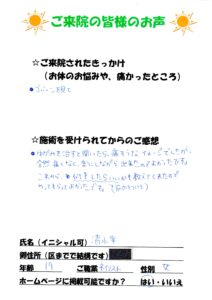 ご来院の皆様のお声
☆ご来院されたきっかけ
(お体のお悩みや、痛かったところ)
を見て
☆施術を受けられてからのご感想
ゆがみを治すと聞いたら、痛そうなイメージでしたが、
全然痛くなく、楽にしながら出来たのでよかったです。
これから、何をしたらいいかも教えてくれたので
やってもらってよかったです。
氏名(イニシャル可)
御住所(区までで結構です)
年齢 19 ご職業 性別 女
ホームページに掲載可能ですか? はい・いいえ